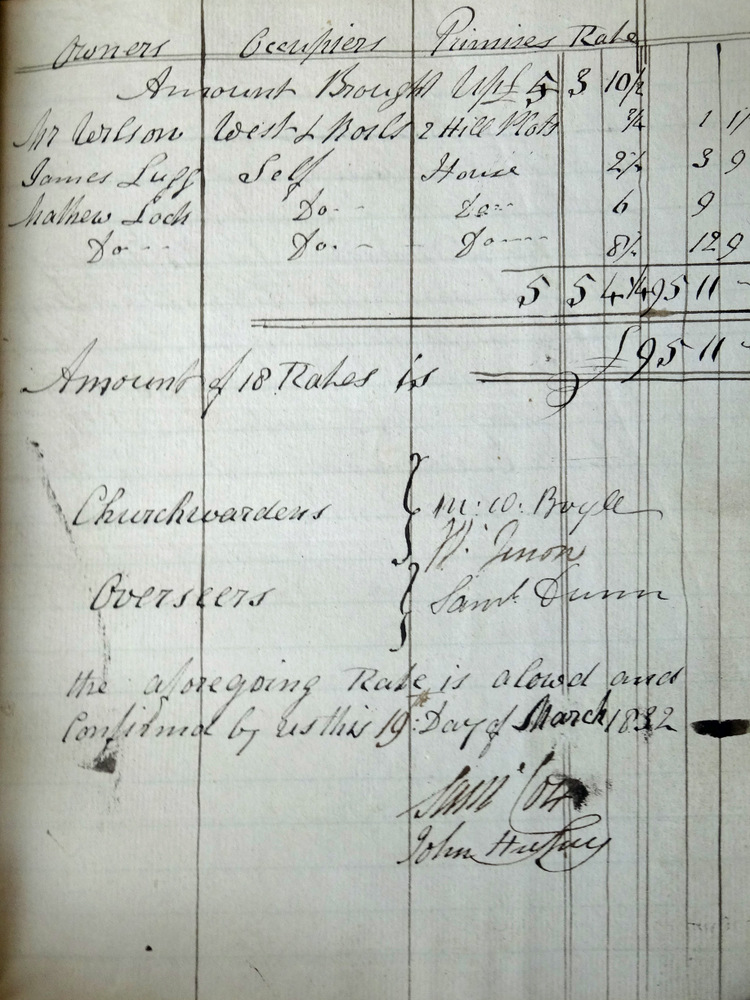 Owners Occupiers Primises Rate
Amount Brought Up £ 5 3 10½
Mr Wilson West & 2 Hill Plots ¾ 1 1
James Lugg Self House 2½ 3 9
Mathew Lock Do Do 6 9
Do Do Do 8½ 12 9
5 5 4¼ 95 11 -
£95 11 -
Amount of 18 Rates is
Churchwardens } M. W. Boyle
W. Jenon
Overseers } Saml. Dunn
the aforegoing Rate is alowd and
Confirmd by us this 19th Day of March 1832
Saml Cox
John